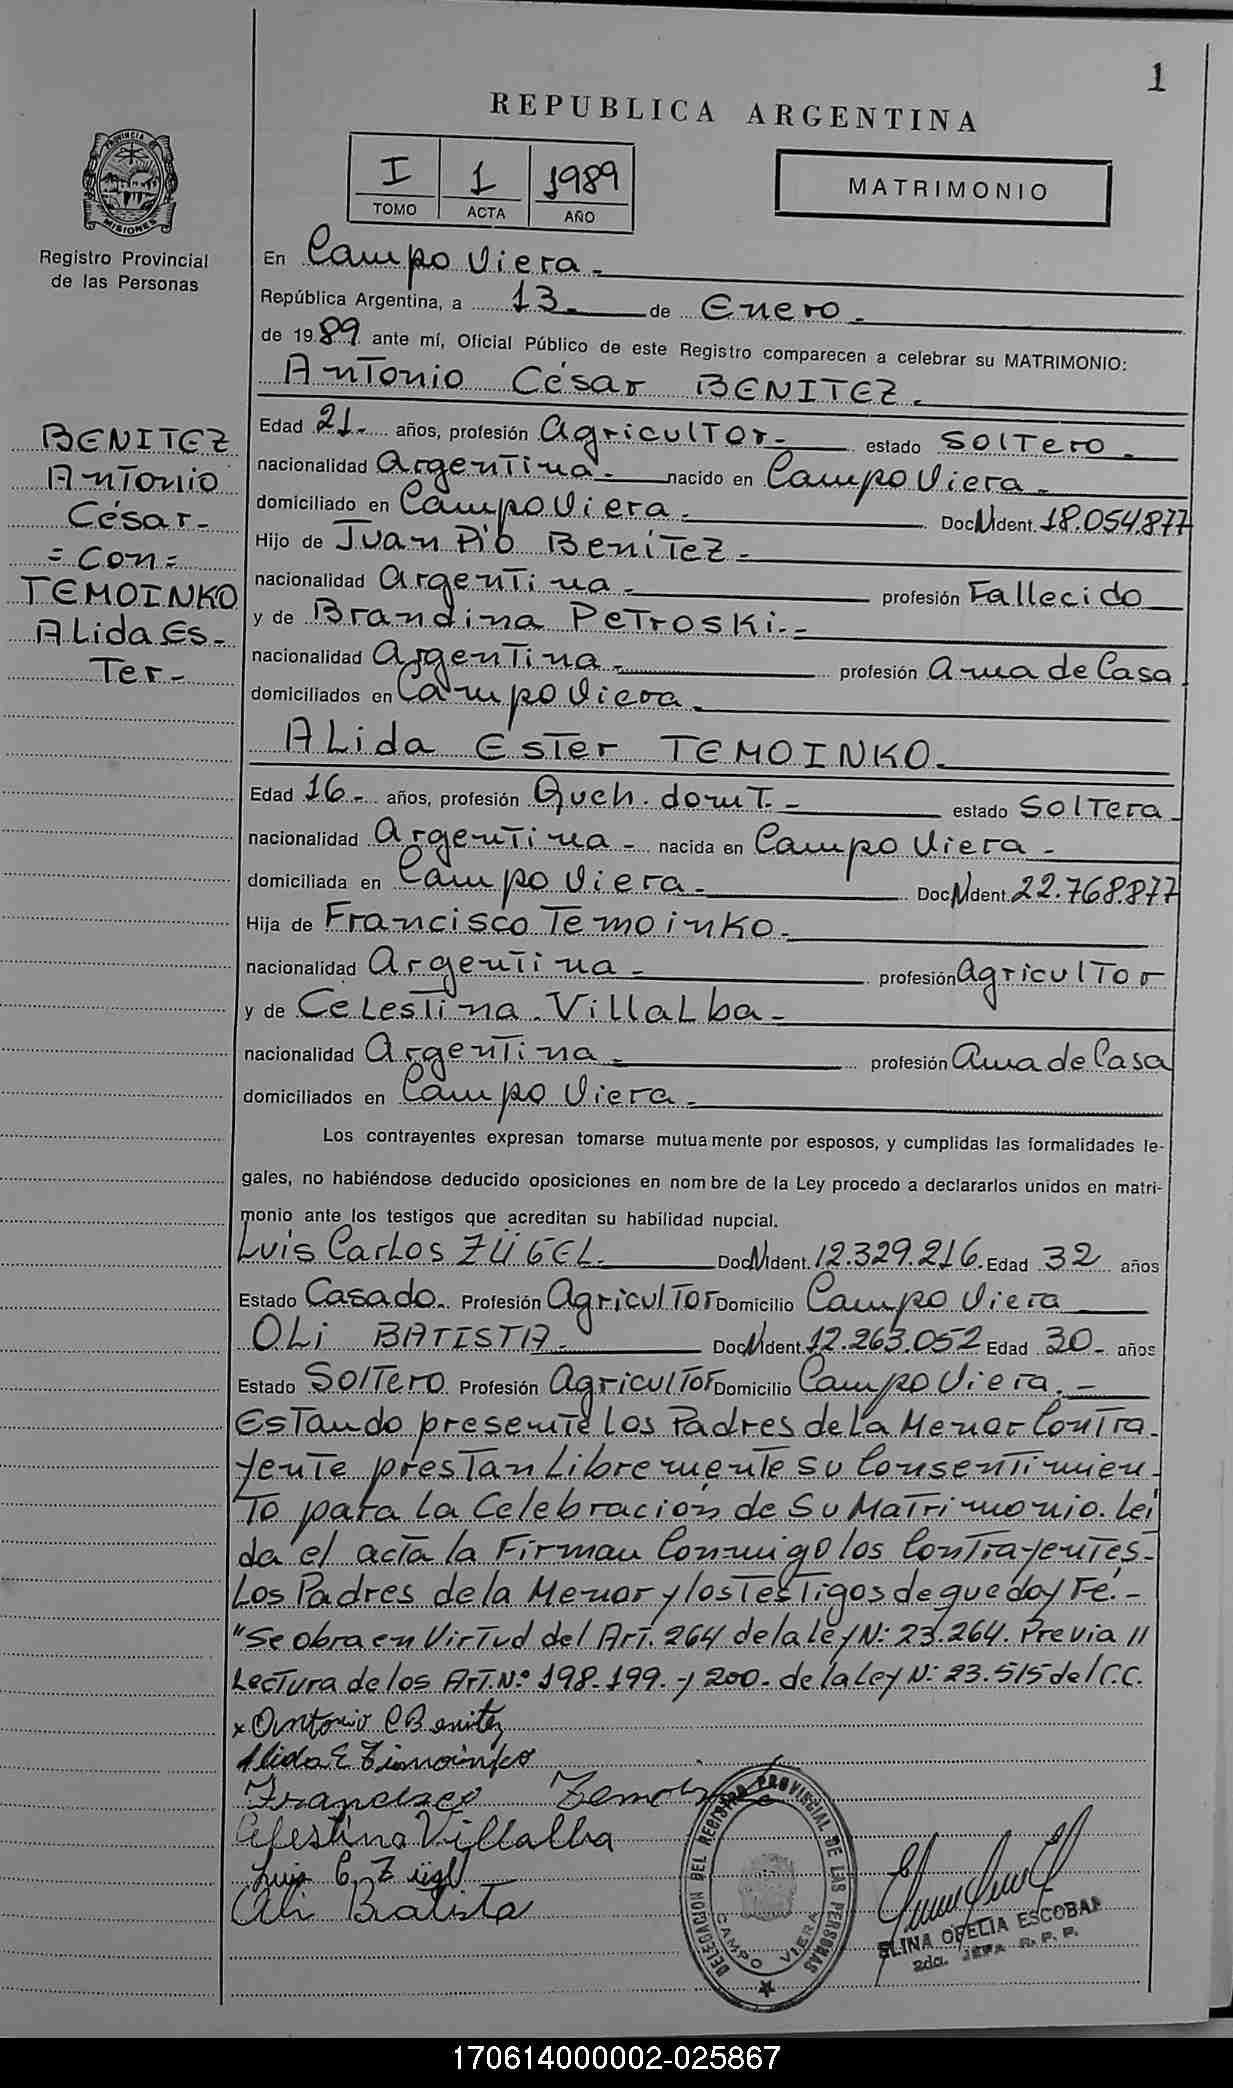 1
REPUBLICA ARGENTINA
PROVINCIA DE
MISIONES
Registro Provincial
de las Personas
I 1 1989
TOMO ACTA AÑO
MATRIMONIO
En Campo Viera.-
República Argentina, a 13.- de Enero.-
de 1989 ante mí, Oficial Público de este Registro comparecen a celebrar su MATRIMONIO:
Antonio César BENITEZ.-
BENITEZ
Antonio
César.-
=Con=
TEMOINKO
ALida Es-
Ter.-
Edad 21.- años, profesión Agricultor.- estado Soltero.-
nacionalidad Argentina.- nacido en Campo Viera.-
domiciliado en Campo Viera.- Doc.N.Ident. 18.054.877
Hijo de Juan Pío Benítez.-
nacionalidad Argentina.- profesión Fallecido
y de Brandina Petroski.-
nacionalidad Argentina.- profesión Ama de Casa
domiciliados en Campo Viera.-
ALida Ester TEMOINKO.-
Edad 16.- años, profesión Queh. domt.- estado Soltera
nacionalidad Argentina.- nacida en Campo Viera.-
domiciliada en Campo Viera.- Doc.N.Ident. 22.768.877
Hija de Francisco Temoinko.-
nacionalidad Argentina.- profesión Agricultor
y de Celestina Villalba.-
nacionalidad Argentina.- profesión Ama de Casa
domiciliados en Campo Viera.-
Los contrayentes expresan tomarse mutuamente por esposos, y cumplidas las formalidades le-
gales, no habiéndose deducido oposiciones en nombre de la Ley procedo a declararlos unidos en matri-
monio ante los testigos que acreditan su habilidad nupcial.
Luis Carlos ZÜGEL.- Doc.N.Ident. 12.329.216. Edad 32 años
Estado Casado.. Profesión Agricultor Domicilio Campo Viera
OLi BATISTA.- Doc.N.Ident. 12.263.052 Edad 30.- años
Estado Soltero Profesión Agricultor Domicilio Campo Viera.-
Estando presente los Padres de la Menor Contra-
yente prestan Libremente su Consentimien-
to para la Celebración de Su Matrimonio. Leí
da el acta la Firman Conmigo los Contrayentes-
Los Padres de la Menor y los Testigos de que doy Fé.-
"Se obra en Virtud del Art. 264 de la ley N: 23.264. Previa //
Lectura de los Art. N.º 198.199. y 200. de la Ley N: 23.515 del C.C.
x Antonio C Benitez
Alida E Timoinko
Francisco Temoinko
Celestina Villalba
Luis C. Zügel
Oli Batista
DELEGACION DEL REGISTRO PROVINCIAL DE LAS PERSONAS
CAMPO VIERA
ELINA OFELIA ESCOBAR
2da. JEFA R. P. P.
170614000002-025867